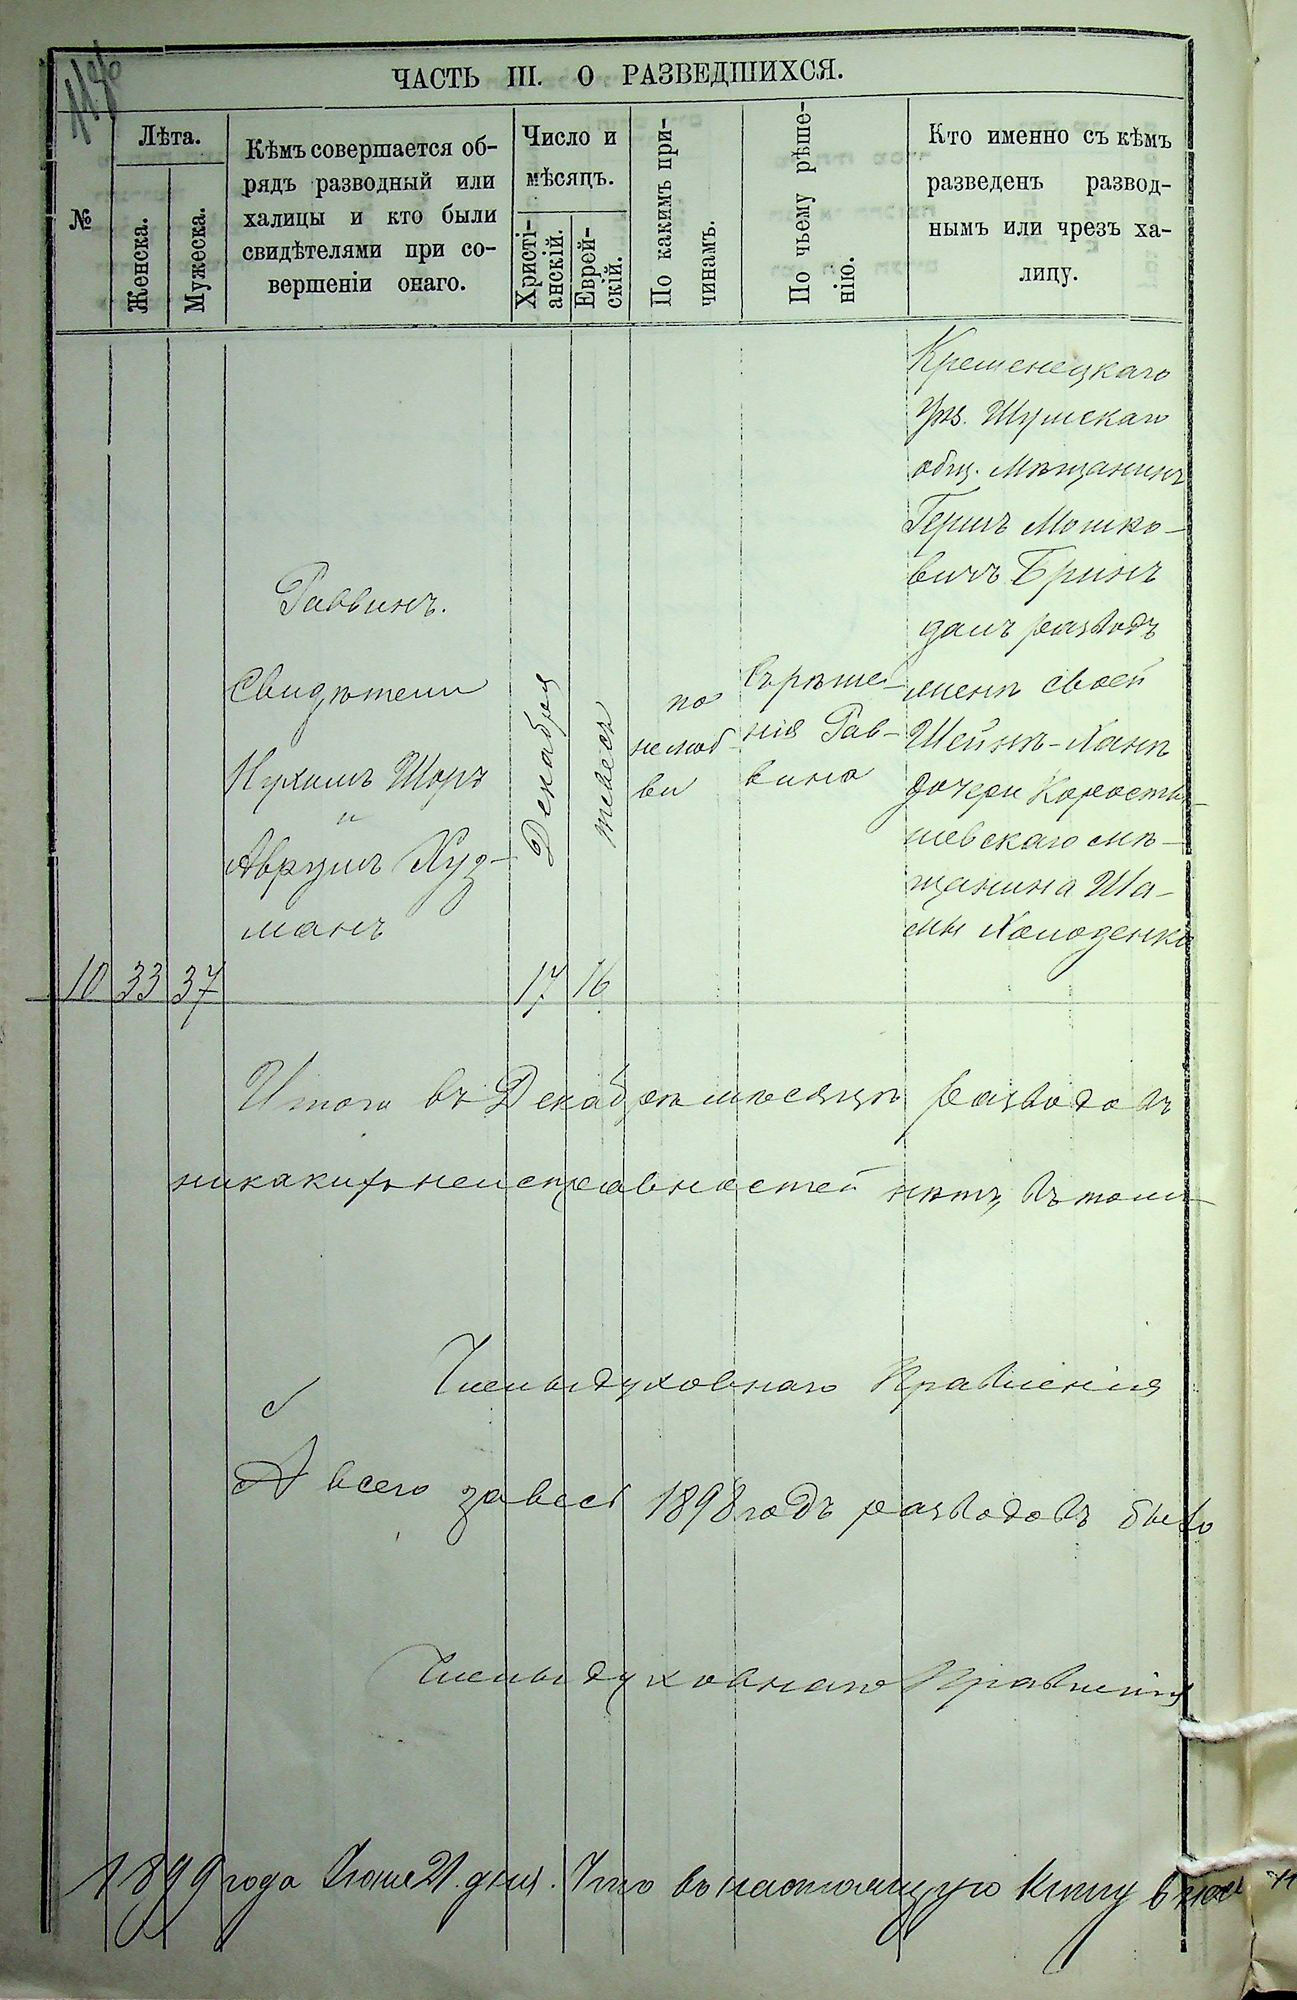 ЧАСТЬ III. О РАЗВЕДШИХСЯ.
№
Лѣта.
Женска.
Мужеска.
Кѣмъ совершается об-
рядъ разводный или
халицы и кто были
свидѣтелями при со-
вершеніи онаго.
Число и
мѣсяцъ.
Христі-
анскій.
Еврей-
скій.
По какимъ при-
чинамъ.
По чьему рѣше-
нію.
Кто именно съ кѣмъ
разведенъ развод-
нымъ или чрезъ ха-
лицу.
10
33
37
Раввинъ.
Свидѣтели
Нухимъ Шоръ
и
Аврумъ Худ-
манъ
Декабря
17
Тевеса
16
по
нелюб-
ви
Съ рѣше-
нія Рав-
вина
Кременецкаго
уѣз. Шумскаго
общ. мѣщанинъ
Гершъ Мошко-
вичъ Бринъ
далъ разводъ
женѣ своей
Шейнѣ-Ханѣ
дочери Коросты-
шевскаго мѣ-
щанина Ша-
мы Холоденко
Итого въ Декабрѣ мѣсяцѣ разводовъ
никакихъ неисправностей нѣтъ, въ томъ
Члены духовнаго Правленія
А всего за весь 1898 годъ разводовъ было
Члены духовнаго Правленія
1899 года 21 дня. Что въ настоящую книгу